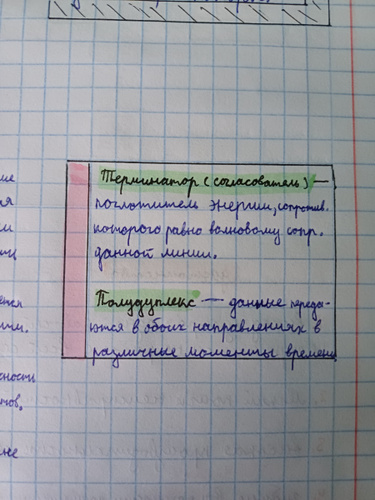 Терминатор (согласователь) —
поглотитель энергии, сопротив.
которого равно волновому сопр.
данной линии.
Полудуплекс — данные переда-
ются в обоих направлениях в
различные моменты времени